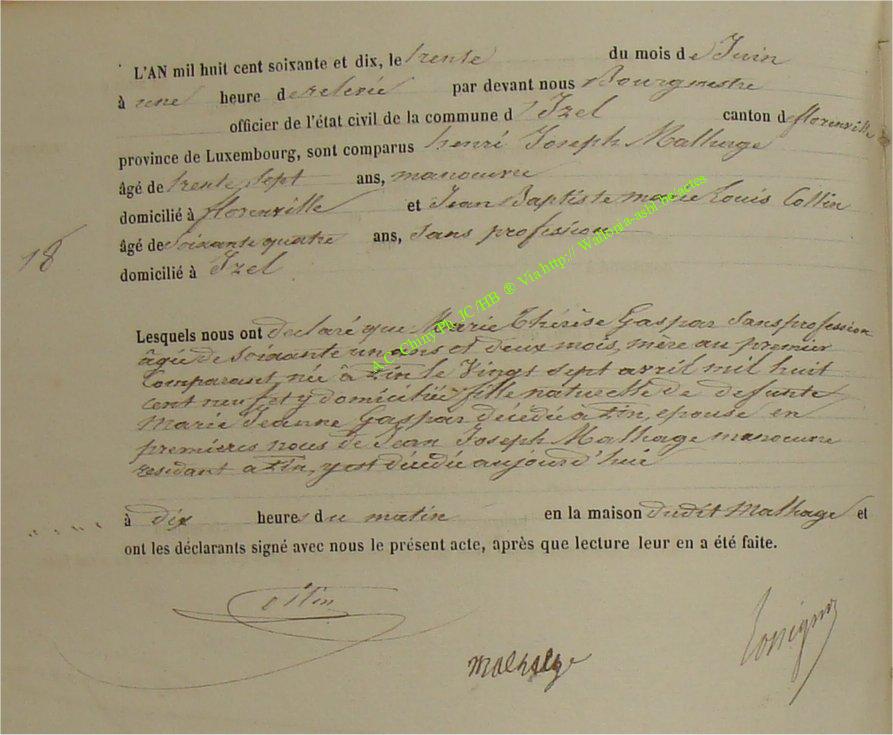 L'AN mil huit cent soixante et dix, le trente du mois de Juin
à une heure de relevée par devant nous Bourgmestre
officier de l'état civil de la commune d'Izel canton de florenville
province de Luxembourg, sont comparus henri Joseph Malhage
âgé de trente sept ans, manoeuvre
domicilié à florenville et Jean Baptiste marie Louis Collin
âgé de soixante quatre ans, Sans profession
18
domicilié à Izel
Lesquels nous ont declaré que Marie Thérèse Gaspar Sans profession
âgée de Soixante un ans et deux mois, mère au premier
Comparant, née à Pin le Vingt Sept avril mil huit
cent neuf et y domiciliée fille naturelle de defunte
Marie Jeanne Gaspar décédée a Pin, epouse en
premieres noces de Jean Joseph Malhage manoeuvre
residant a Pin, y est décédée aujourd'hui
à dix heures du matin en la maison dudit Malhage et
ont les déclarants signé avec nous le présent acte, après que lecture leur en a été faite.
Malhage
A.C. Chiny Ph. JC/HB ® Via http:// Wallonia-asbl be/actes